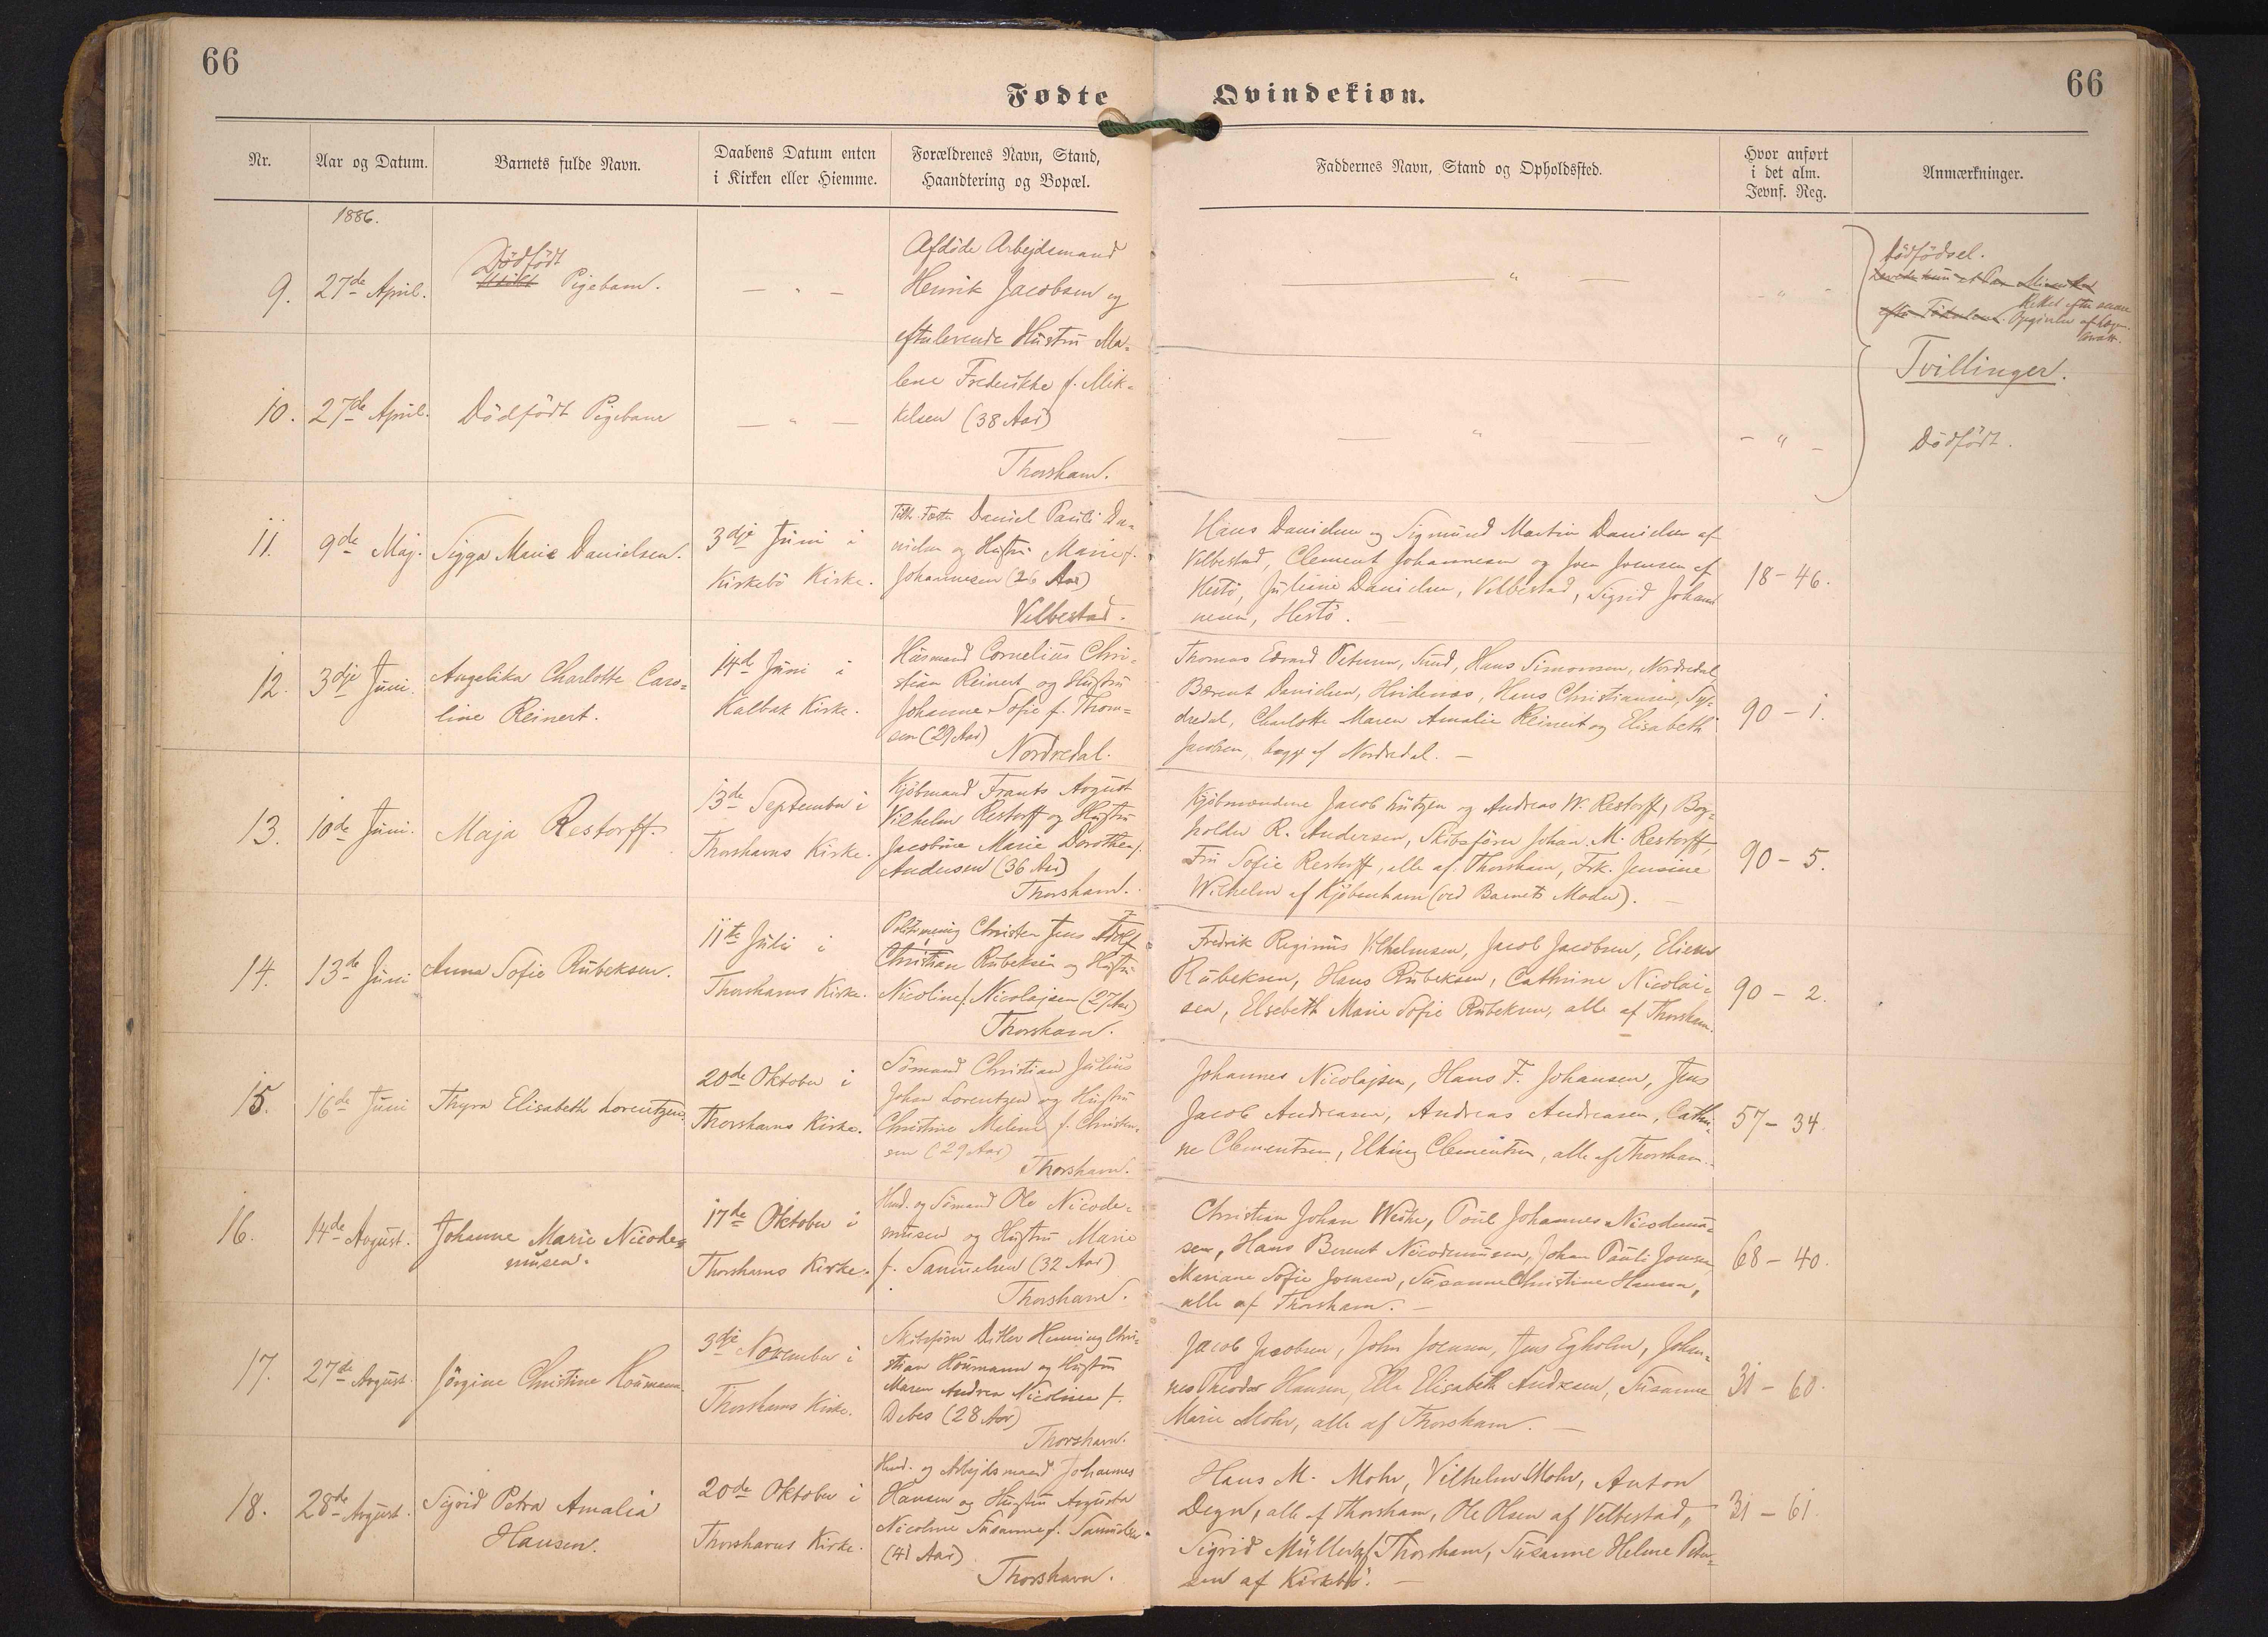 66
66
Fødte
Qvindekiøn.
Nr.
Aar og Datum.
Barnets fulde Navn.
Daabens Datum enten
i Kirken eller Hiemme.
Forældrenes Navn, Stand,
Haandtering og Bopæl.
Faddernes Navn, Stand og Opholdssted.
Hvor anført
i det alm.
Jevnf. Reg.
Anmærkninger.
1886.
9.
27de April.
Dödfödt
Pigebarn.
— " —
Afdöde Arbejdsmand
Henrik Jacobsen og
efterlevende Hustru Ma-
lene Frederikke f. Mik-
kelsen (38 Aar)
Thorshavn.
— " —
- " -
Dödfödsel.
Tvillinger.
10.
27de April.
Dödfödt Pigebarn
— " —
— " —
- " -
Dödfödt.
11.
9de Maj.
Sigga Marie Danielsen.
3dje Juni i
Kirkebö Kirke.
Daniel Pauli Da-
nielsen og Hustru Marie f.
Johannesen (26 Aar)
Velbestad.
Hans Danielsen og Sigmund Martin Danielsen af
Velbestad, Clement Johannesen og Joen Joensen af
Hestö, Juliane Danielsen, Velbestad, Sigrid Johan-
nesen, Hestö.
18 - 46.
12.
3dje Juni.
Angelika Charlotte Caro-
line Reinert.
14de Juni i
Kalbak Kirke.
Husmand Cornelius Chri-
stian Reinert og Hustru
Johanne Sofie f. Thom-
sen (29 Aar)
Nordredal.
Thomas Edvard Petersen, Sund, Hans Simonsen, Nordredal,
Bærent Danielsen, Hvidenæs, Hans Christiansen, Sy-
dredal, Charlotte Maren Amalie Reinert og Elisabeth
Jacobsen, begge af Nordredal. —
90 - 1.
13.
10de Juni.
Maja Restorff.
13de September i
Thorshavns Kirke.
Kjöbmand Frants August
Vilhelm Restorff og Hustru
Jacobine Marie Dorothea f.
Andersen (36 Aar)
Thorshavn.
Kjöbmændene Jacob Lützen og Andreas W. Restorff, Bog-
holder R. Andersen, Skibsförer Johan M. Restorff,
Fru Sofie Restorff, alle af Thorshavn, Frk. Jensine
Wilhelm af Kjöbenhavn (ved Barnets Moder). —
90 - 5.
14.
13de Juni
Anna Sofie Rubeksen.
11te Juli i
Thorshavns Kirke.
Christen Jens
Christian Rubeksen og Hustru
Nicoline f. Nicolajsen (27 Aar)
Thorshavn.
Fredrik Reginus Vilhelmsen, Jacob Jacobsen, Elieser
Rubeksen, Hans Rubeksen, Cathrine Nicolai-
sen, Elsebeth Marie Sofie Rubeksen, alle af Thorshavn.
90 - 2.
15.
16de Juni
Thyra Elisabeth Lorentzen.
20de Oktober i
Thorshavns Kirke.
Sömand Christian Julius
Johan Lorentzen og Hustru
Christine Melene f. Christen-
sen (29 Aar)
Thorshavn.
Johannes Nicolajsen, Hans F. Johansen, Jens
Jacob Andreasen, Andreas Andreasen, Cathri-
ne Clementsen, Clementsen, alle af Thorshavn.
57 - 34.
16.
14de August.
Johanne Marie Nicode-
musen.
17de Oktober i
Thorshavns Kirke.
Hmd. og Sömand Ole Nicode-
musen og Hustru Marie
f. Samuelsen (32 Aar)
Thorshavn.
Christian Johan Weihe, Poul Johannes Nicodemu-
sen, Hans Berent Nicodemusen, Johan Pauli Joensen,
Mariane Sofie Joensen, Susanne Christine Hansen,
alle af Thorshavn. —
68 - 40.
17.
27de August.
Jörgine Christine Houmann.
3dje November i
Thorshavns Kirke.
Skibsförer Ditlev Henning Chri-
stian Houmann og Hustru
Maren Andrea Nicoline f.
Debes (28 Aar)
Thorshavn.
Jacob Jacobsen, John Joensen, Jens Egholm, Johan-
nes Theodor Hansen, Elle Elisabeth Andresen, Susanne
Marie Mohr, alle af Thorshavn. —
31 - 60.
18.
28de August.
Sigrid Petra Amalia
Hansen.
20de Oktober i
Thorshavns Kirke.
Hmd. og Arbejdsmand Johannes
Hansen og Hustru Augusta
Nicoline Susanne f. Samuelsen
(41 Aar)
Thorshavn.
Hans M. Mohr, Vilhelm Mohr, Anton
Degn, alle af Thorshavn, Ole Olsen af Velbestad,
Sigrid Müller af Thorshavn, Susanne Helene Peter-
sen af Kirkebö. —
31 - 61.